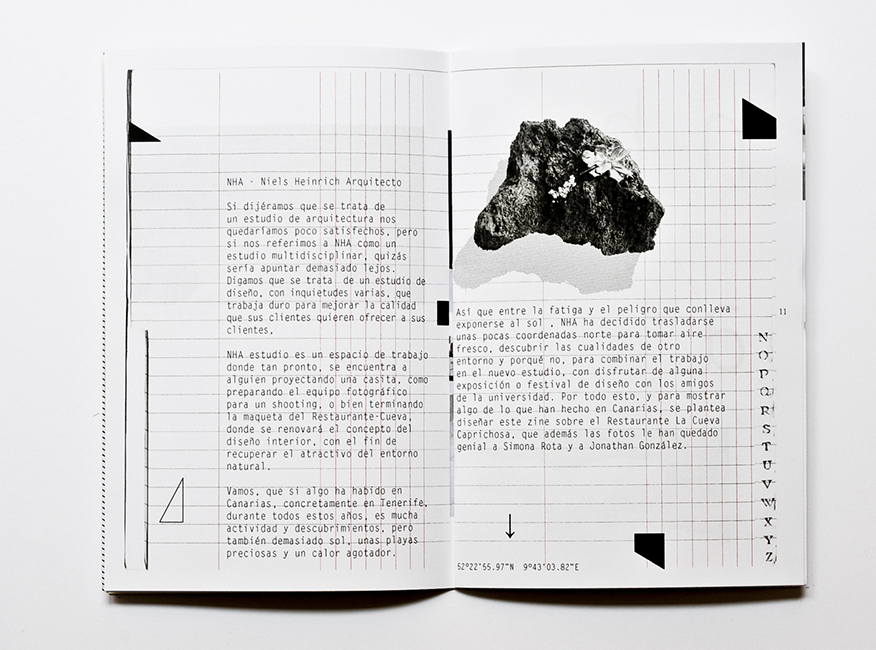 NHA - Niels Heinrich Arquitecto
Si dijéramos que se trata de
un estudio de arquitectura nos
quedaríamos poco satisfechos, pero
si nos referimos a NHA como un
estudio multidisciplinar, quizás
sería apuntar demasiado lejos.
Digamos que se trata de un estudio de
diseño, con inquietudes varias, que
trabaja duro para mejorar la calidad
que sus clientes quieren ofrecer a sus
clientes,
NHA estudio es un espacio de trabajo
donde tan pronto, se encuentra a
alguien proyectando una casita, como
preparando el equipo fotográfico
para un shooting, o bien terminando
la maqueta del Restaurante-Cueva,
donde se renovará el concepto del
diseño interior, con el fin de
recuperar el atractivo del entorno
natural.
Vamos, que si algo ha habido en
Canarias, concretamente en Tenerife,
durante todos estos años, es mucha
actividad y descubrimientos, pero
también demasiado sol, unas playas
preciosas y un calor agotador.
Así que entre la fatiga y el peligro que conlleva
exponerse al sol , NHA ha decidido trasladarse
unas pocas coordenadas norte para tomar aire
fresco, descubrir las cualidades de otro
entorno y porqué no, para combinar el trabajo
en el nuevo estudio, con disfrutar de alguna
exposición o festival de diseño con los amigos
de la universidad. Por todo esto, y para mostrar
algo de lo que han hecho en Canarias, se plantea
diseñar este zine sobre el Restaurante La Cueva
Caprichosa, que además las fotos le han quedado
genial a Simona Rota y a Jonathan González.
52°22'55.97"N 9°43'03.82"E
11
N
O
P
Q
R
S
T
U
V
W
X
Y
Z